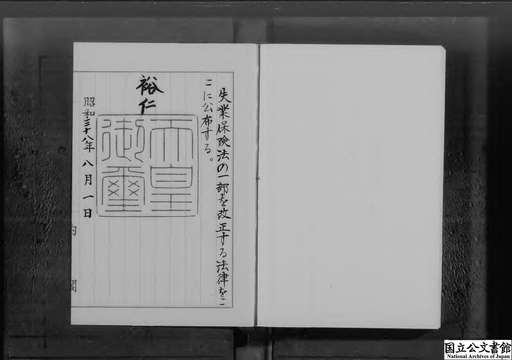 失業保険法の一部を改正する法律をこ
こに公布する。
裕仁
天皇
御璽
昭和三十八年八月一日
内閣
国立公文書館
National Archives of Japan